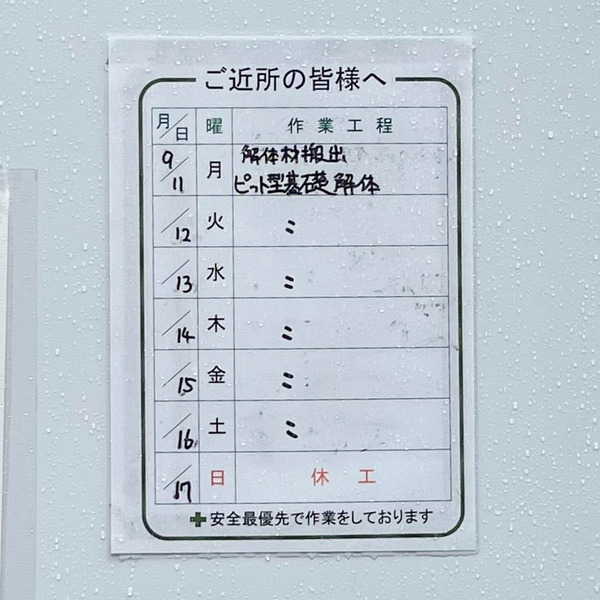 ご近所の皆様へ
月/日 曜 作業工程
9/11 月 解体材搬出
ピット型基礎解体
/12 火 〃
/13 水 〃
/14 木 〃
/15 金 〃
/16 土 〃
/17 日 休工
安全最優先で作業をしております